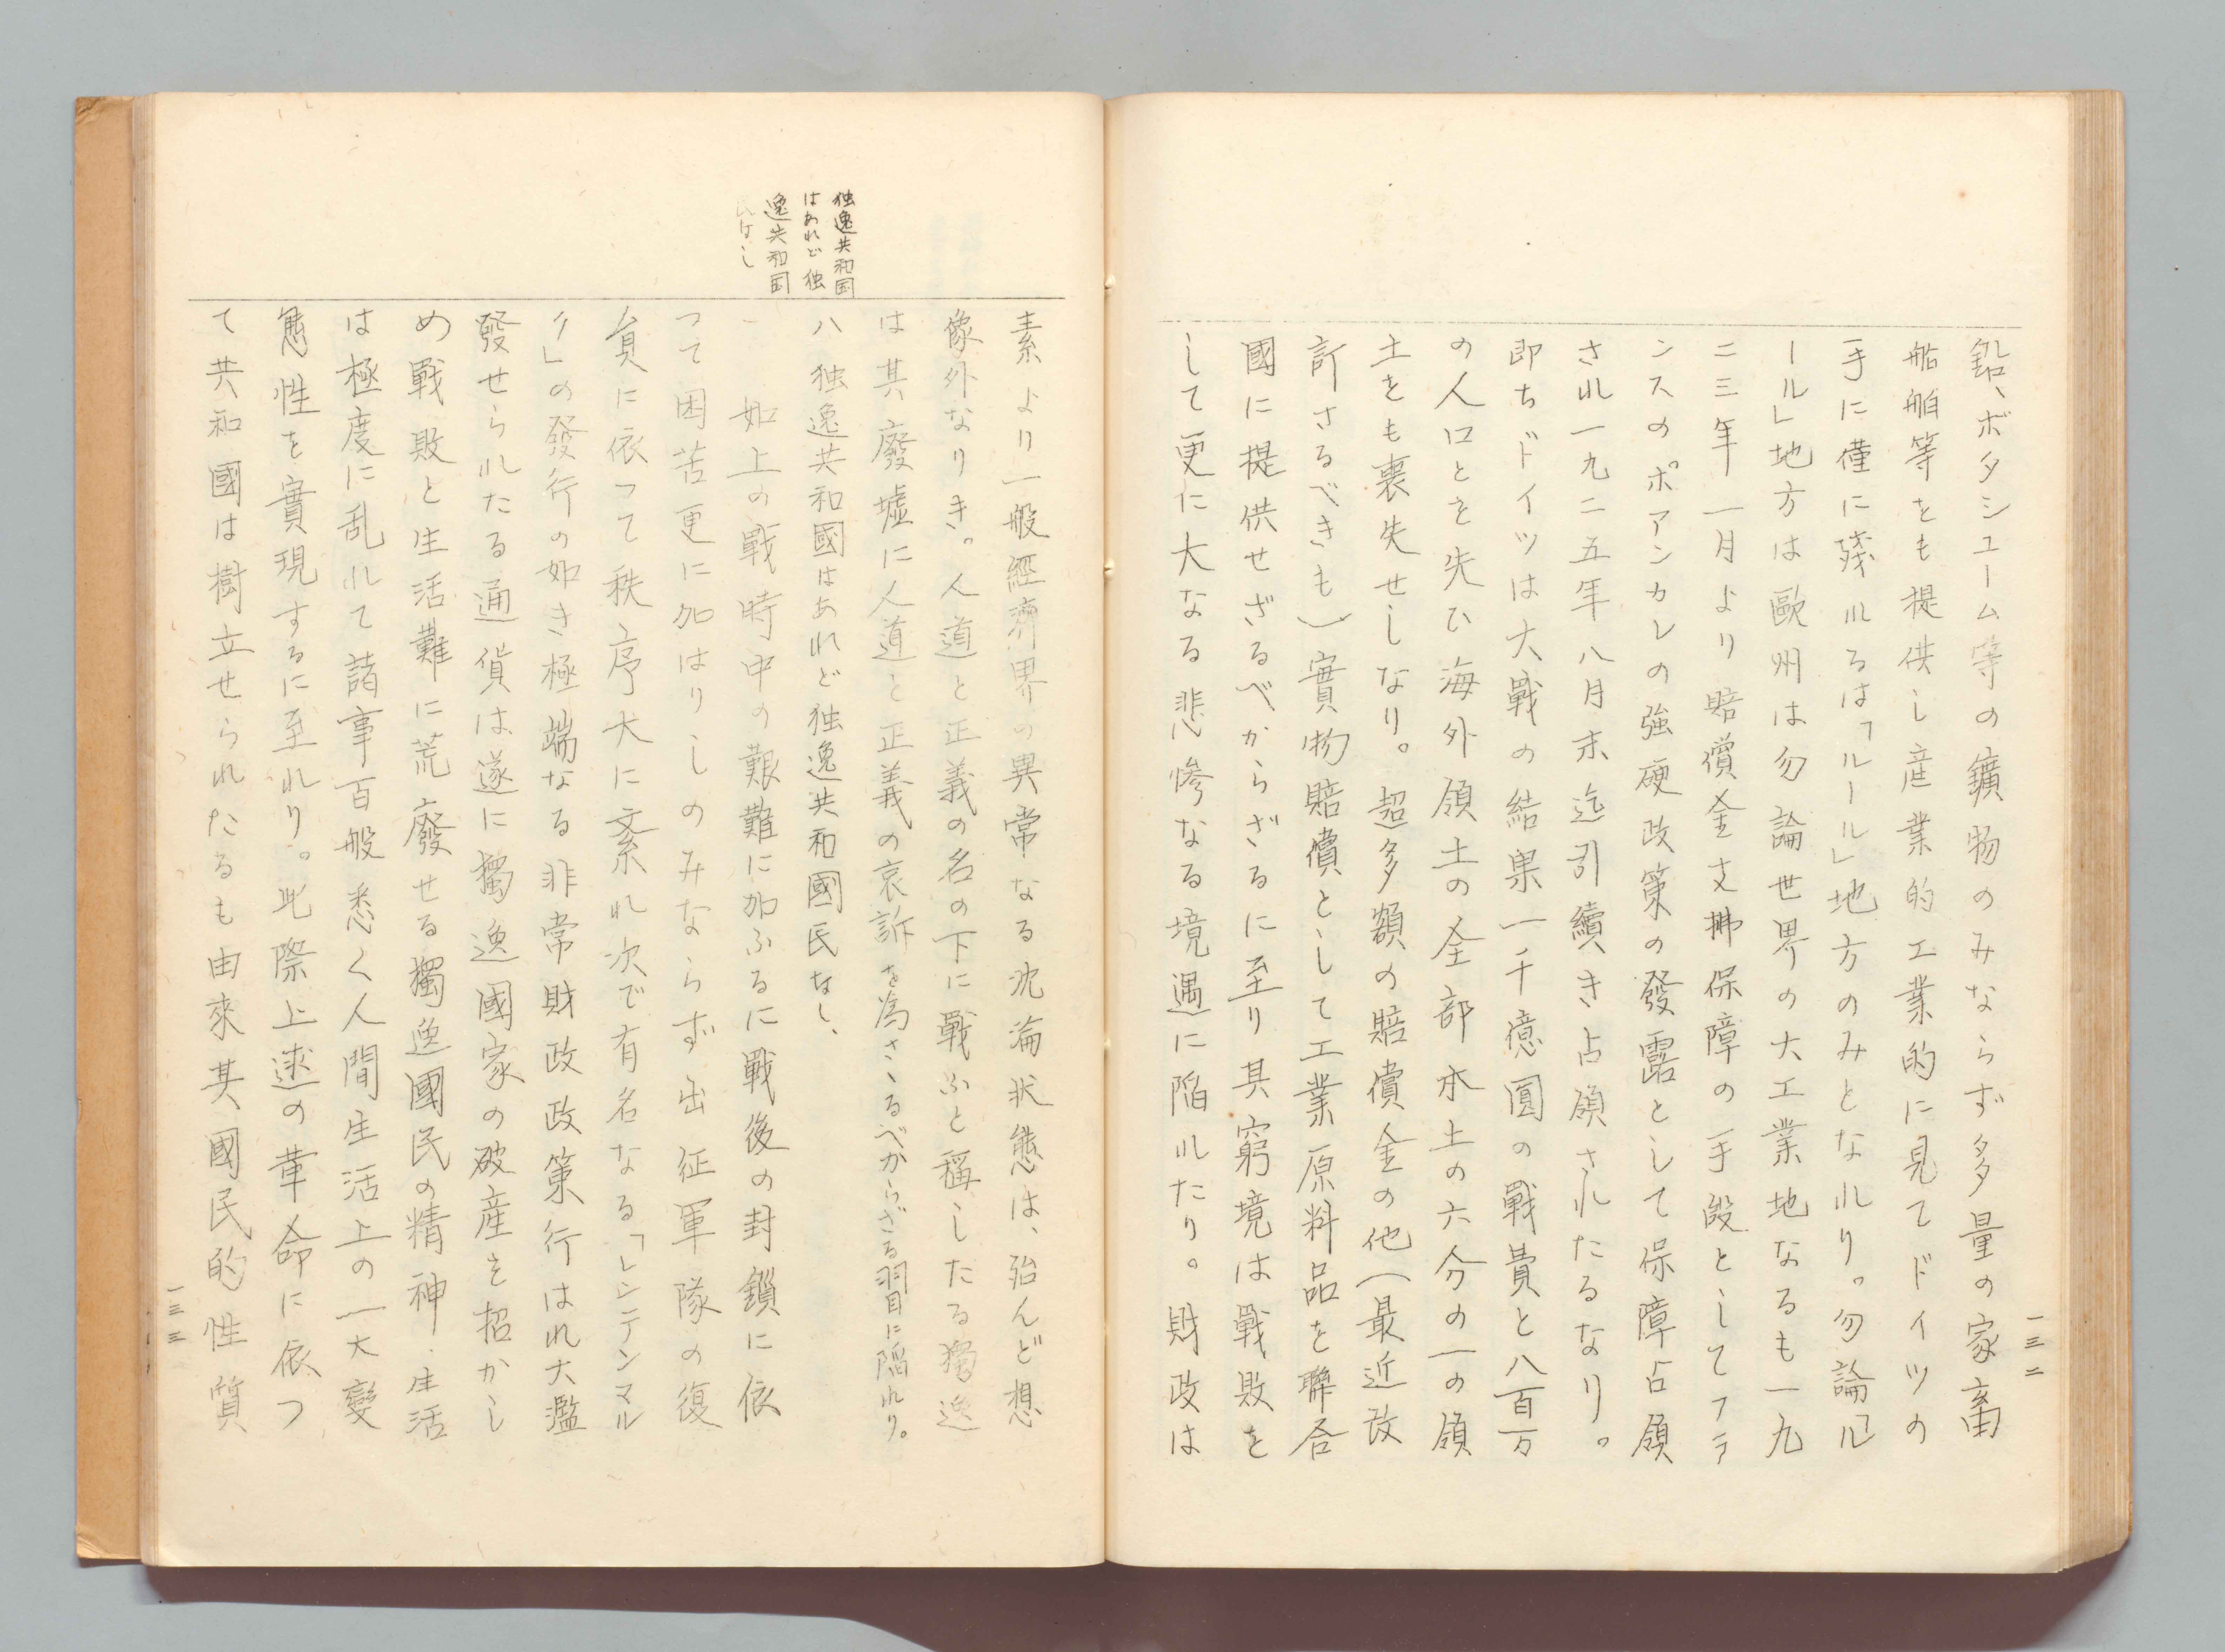 鉛、ボタシユーム等の鑛物のみならず多量の家畜
船舶等をも提供し産業的工業的に見てドイツの
手に僅に殘れるは「ルール」地方のみとなれり。勿論「ル
ール」地方は歐州は勿論世界の大工業地なるも一九
二三年一月より賠償金支拂保障の手段としてフラ
ンスのポアンカレの強硬政策の發露として保障占領
され一九二五年八月末迄引續き占領されたるなり。
即ちドイツは大戰の結果一千億圓の戰費と八百万
の人口とを失ひ海外領土の全部本土の六分の一の領
土をも喪失せしなり。超多額の賠償金の他(最近改
訂さるべきも)實物賠償として工業原料品を聯合
國に提供せざるべからざるに至り其窮境は戰敗を
して更に大なる悲慘なる境遇に陷れたり。財政は
一三二
独逸共和国
はあれど独
逸共和国
民なし
素より一般經濟界の異常なる沈淪状態は、殆んど想
像外なりき。人道と正義の名の下に戰ふと稱したる獨逸
は其廢墟に人道と正義の哀訴を為さゝるべからざる羽目に陷れり。
八 独逸共和國はあれど独逸共和國民なし、
如上の戰時中の艱難に加ふるに戰後の封鎖に依
つて困苦更に加はりしのみならず出征軍隊の復
員に依つて秩序大に紊れ次で有名なる「レンテンマル
ク」の發行の如き極端なる非常財政政策行はれ大濫
發せられたる通貨は遂に獨逸國家の破産を招かし
め戰敗と生活難に荒廢せる獨逸國民の精神・生活
は極度に乱れて諸事百般悉く人間生活上の一大變
態性を實現するに至れり。此際上述の革命に依つ
て共和國は樹立せられたるも由來其國民的性質
一三三